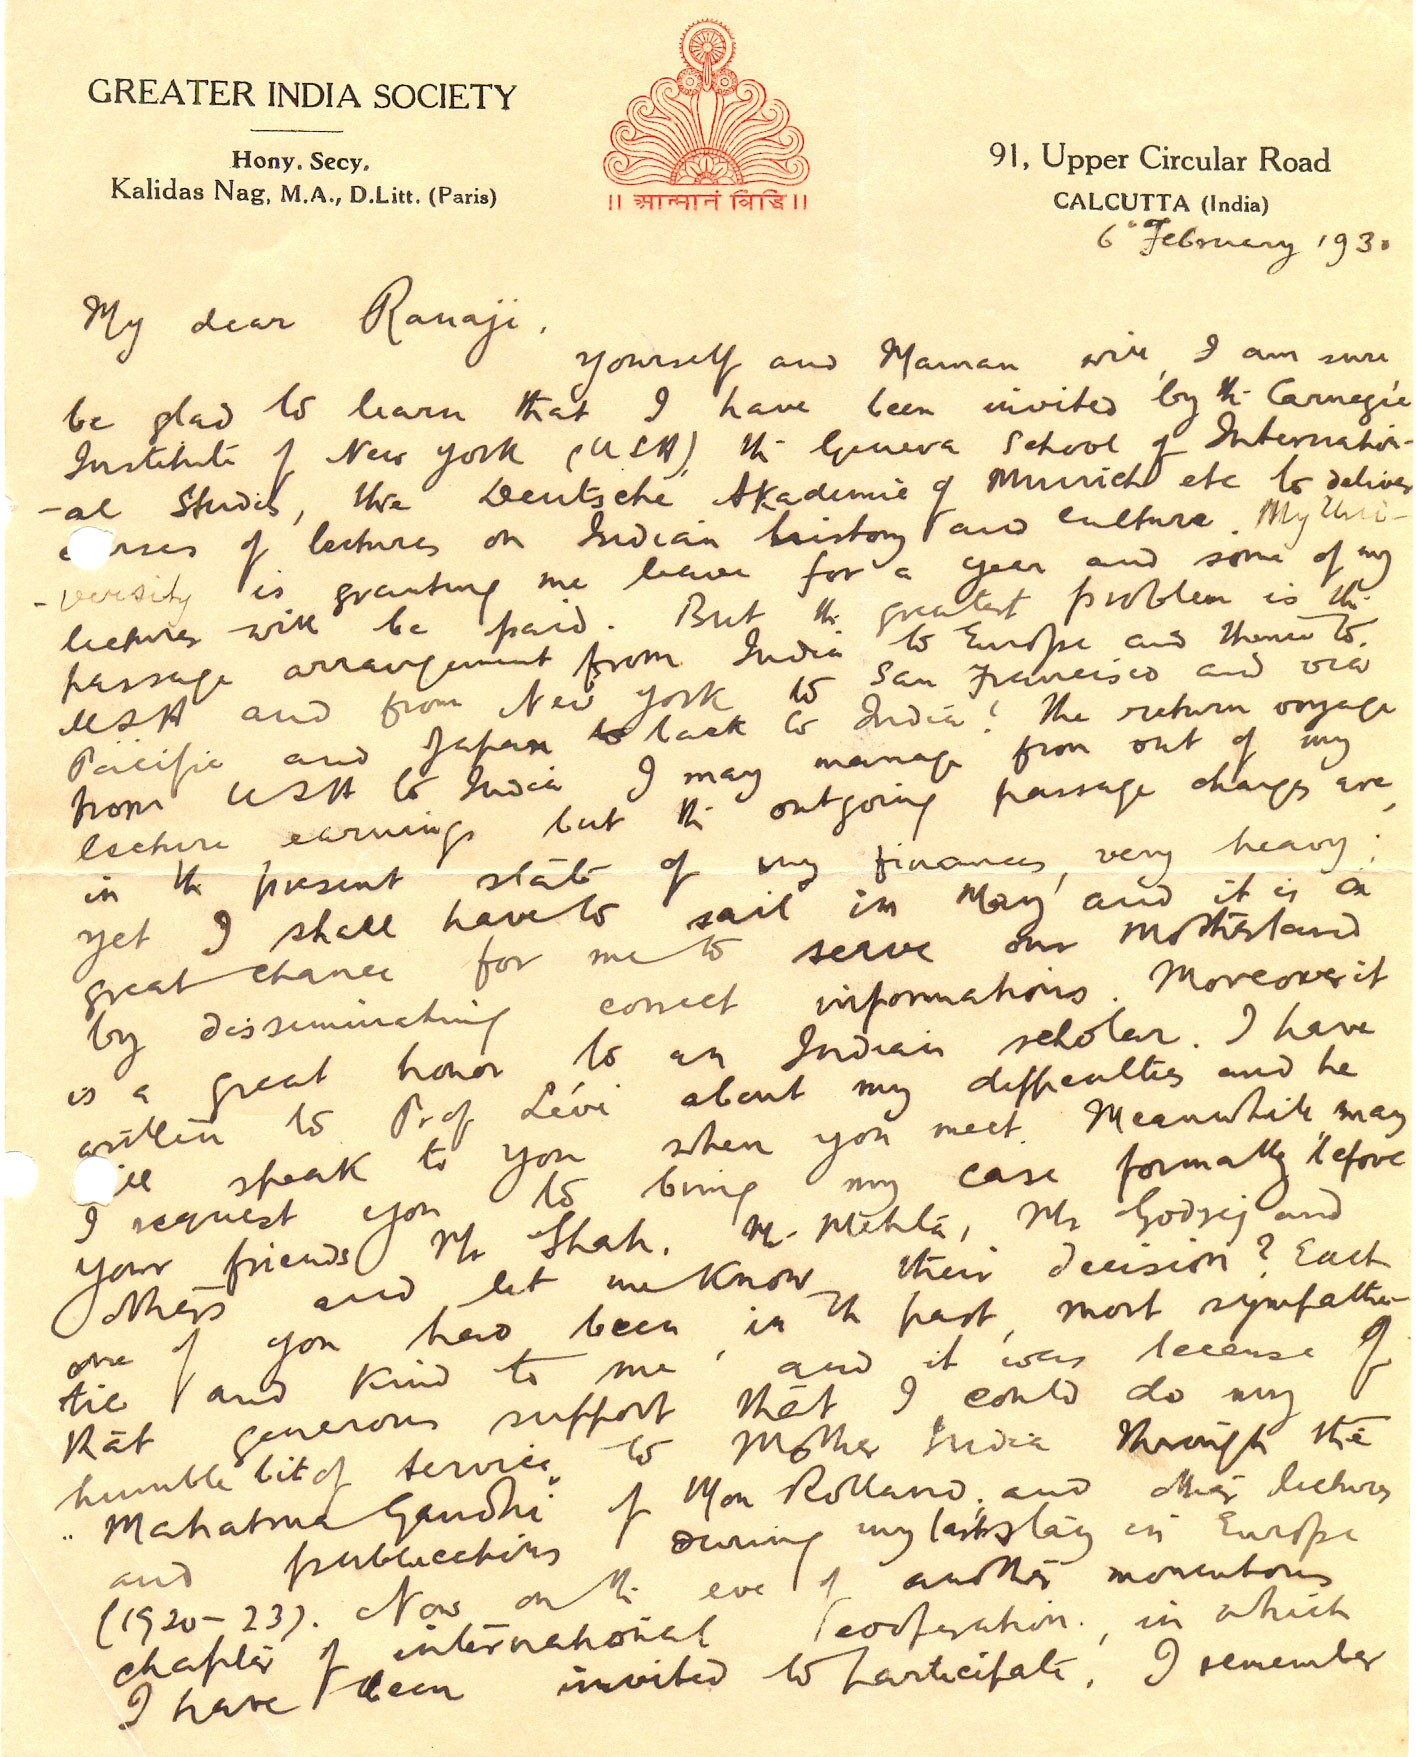 GREATER INDIA SOCIETY
Hony. Secy.
Kalidas Nag, M.A., D.Litt. (Paris)
|| आत्मानं विद्धि ||
91, Upper Circular Road
CALCUTTA (India)
6 February 1930
My dear Ranaji,
Yourself and Maman will, I am sure
be glad to learn that I have been invited by the Carnegie
Institute of New York (USA), the Geneva School of Internation-
-al Studies, the Deutsche Akademie of Munich etc to deliver
courses of lectures on Indian history and culture. My Uni-
-versity is granting me leave for a year and some of my
lectures will be paid. But the greatest problem is the
passage arrangement from India to Europe and thence to
USA and from New York to San Francisco and via
Pacific and Japan back to India! The return voyage
from USA to India I may manage from out of my
lecture earnings but the outgoing passage charges are,
in the present state of my finances, very heavy;
yet I shall have to sail in May and it is a
great chance for me to serve our Motherland
by disseminating correct informations. Moreover it
is a great honor to an Indian scholar. I have
written to Prof Lévi about my difficulties and he
will speak to you when you meet. Meanwhile may
I request you to bring my case formally before
your friends Mr Shah, Mr. Mehta, Mr Godrej and
others and let me know their decision? Each
one of you had been, in the past, most sympathe-
tic and kind to me, and it was because of
that generous support that I could do my
humble bit of service to Mother India through the
"Mahatma Gandhi" of Mon Rolland, and other lectures
and publications during my last stay in Europe
(1920-23). Now on the eve of another momentous
chapter of international Cooperation, in which
I have been invited to participate, I remember